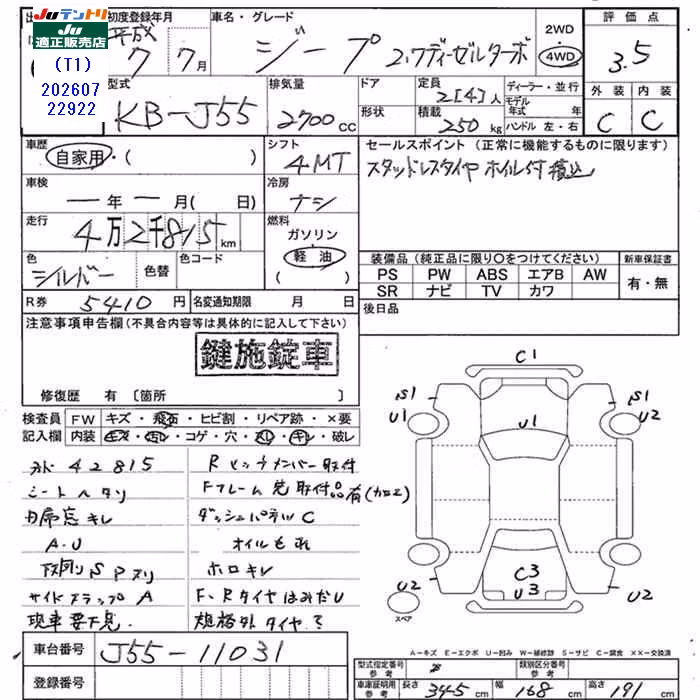 Juテントリ
Ju
適正販売店
(T1)
202607
22922
初度登録年月
平成
7年 7月
車名・グレード
ジープ 2.7ディーゼルターボ
2WD
4WD
評価点
3.5
型式
KB-J55
排気量
2700 cc
ドア
形状
定員
2[4]人
積載
250 kg
ディーラー・並行
モデル年式 年
ハンドル 左・右
外装 内装
C C
車歴
自家用・( )
シフト
4MT
セールスポイント (正常に機能するものに限ります)
スタッドレスタイヤ ホイル付積込
車検
ー年ー月( 日)
冷房
ナシ
走行
4万2千815 km
燃料
ガソリン
軽油
色
シルバー
色替
色コード
装備品 (純正品に限り○をつけてください)
新車保証書
PS PW ABS エアB AW
SR ナビ TV カワ
有・無
R券 5410 円
名変通知期限 月 日
後日品
注意事項申告欄 (不具合内容等は具体的に記入して下さい)
鍵施錠車
修復歴 有 〔箇所 〕
検査員 FW キズ・飛石・ヒビ割・リペア跡・×要
記入欄 内装 キズ・汚レ・コゲ・穴・スレ・キレ・破レ
42815
シートヘタリ
キレ
A.U
下廻りS Pスリ
サイドステップ A
現車要下見.
Rヒッチメンバー取付
Fフレーム先取付品有(加工)
ダッシュパネルC
オイルもれ
ホロキレ
F、Rタイヤはみだし
規格外タイヤ
C1
S1
U1
U1
S1
U2
C3
U3
U2
U2
スペア
A=キズ E=エクボ U=凹み W=補修跡 S=サビ C=腐食 ××=交換済
車台番号 J55-11031
登録番号
型式指定番号
参考
類別区分番号
参考
車庫証明用
参考
長さ 345 cm 幅 168 cm 高さ 191 cm